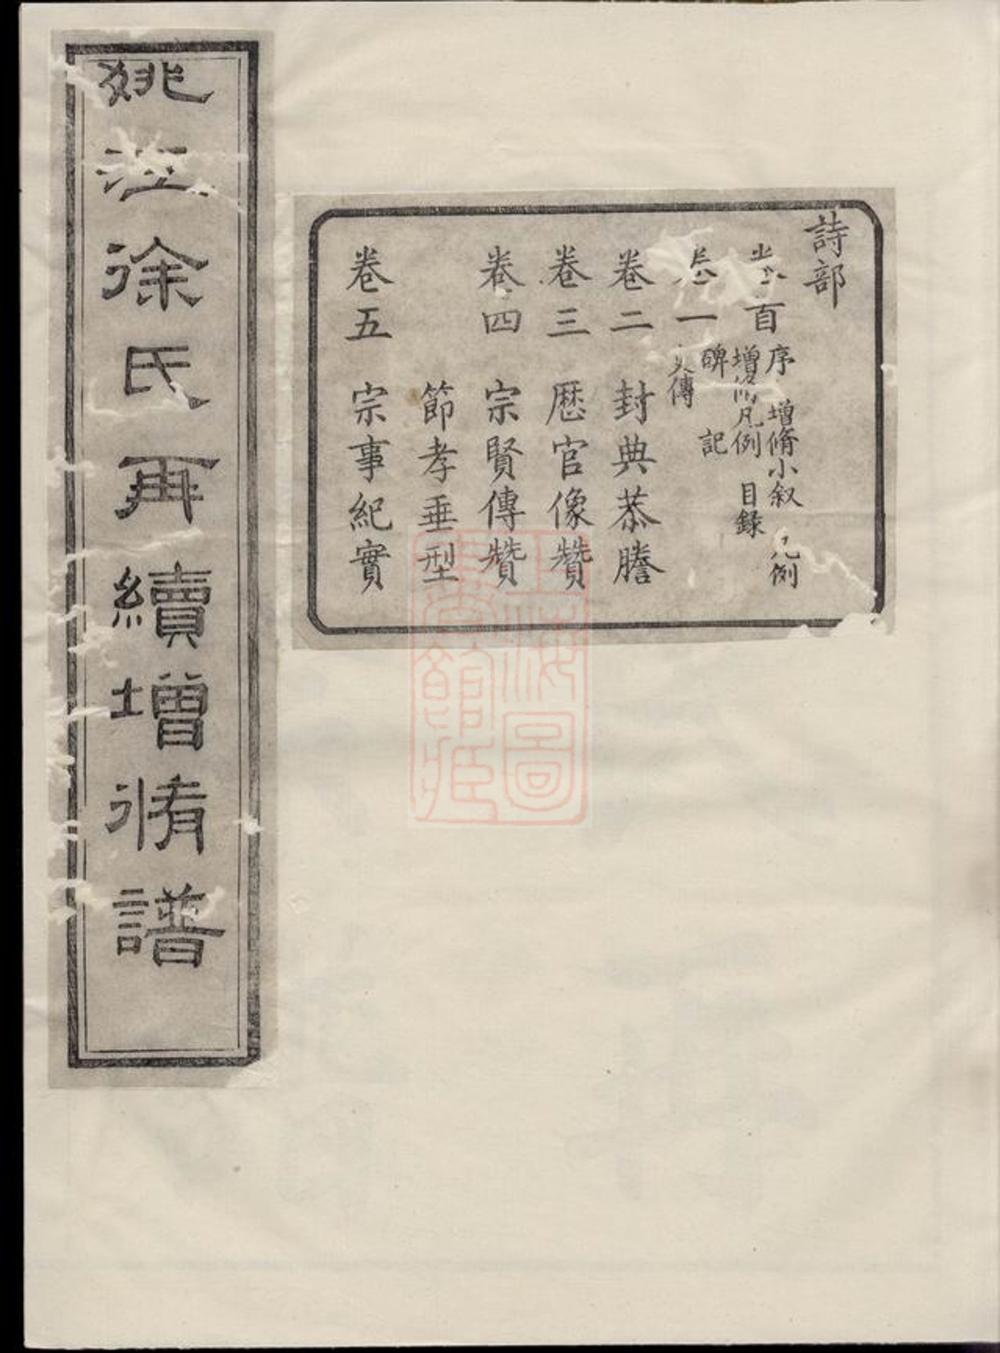 姚江徐氏再續增脩譜
詩部
卷首
序 增脩小叙 凡例
增脩凡例 目録
卷一
碑記
傳
卷二 封典恭謄
卷三 歷官像贊
卷四 宗賢傳贊
節孝垂型
卷五 宗事紀實
上海圖書館藏